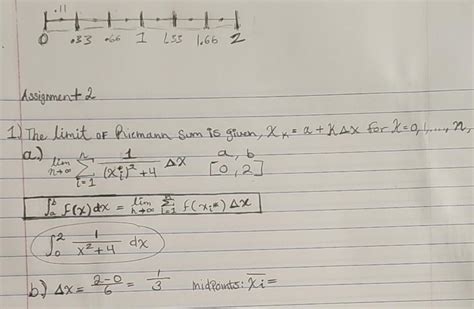 .11
0 .33 .66 1 1.33 1.66 2
Assignment 2
1) The limit of Riemann sum is given, Xₖ = a + KΔx for K=0,1,...., n,
a.) lim n→∞ Σ i=1 n 1/((xi*)²+4) Δx a, b [0, 2]
∫ₐᵇ f(x)dx = lim n→∞ Σ i=1 n f(xi*) Δx
∫₀² 1/(x²+4) dx
b.) Δx = (2-0)/6 = 1/3 midpoints: x̄i =